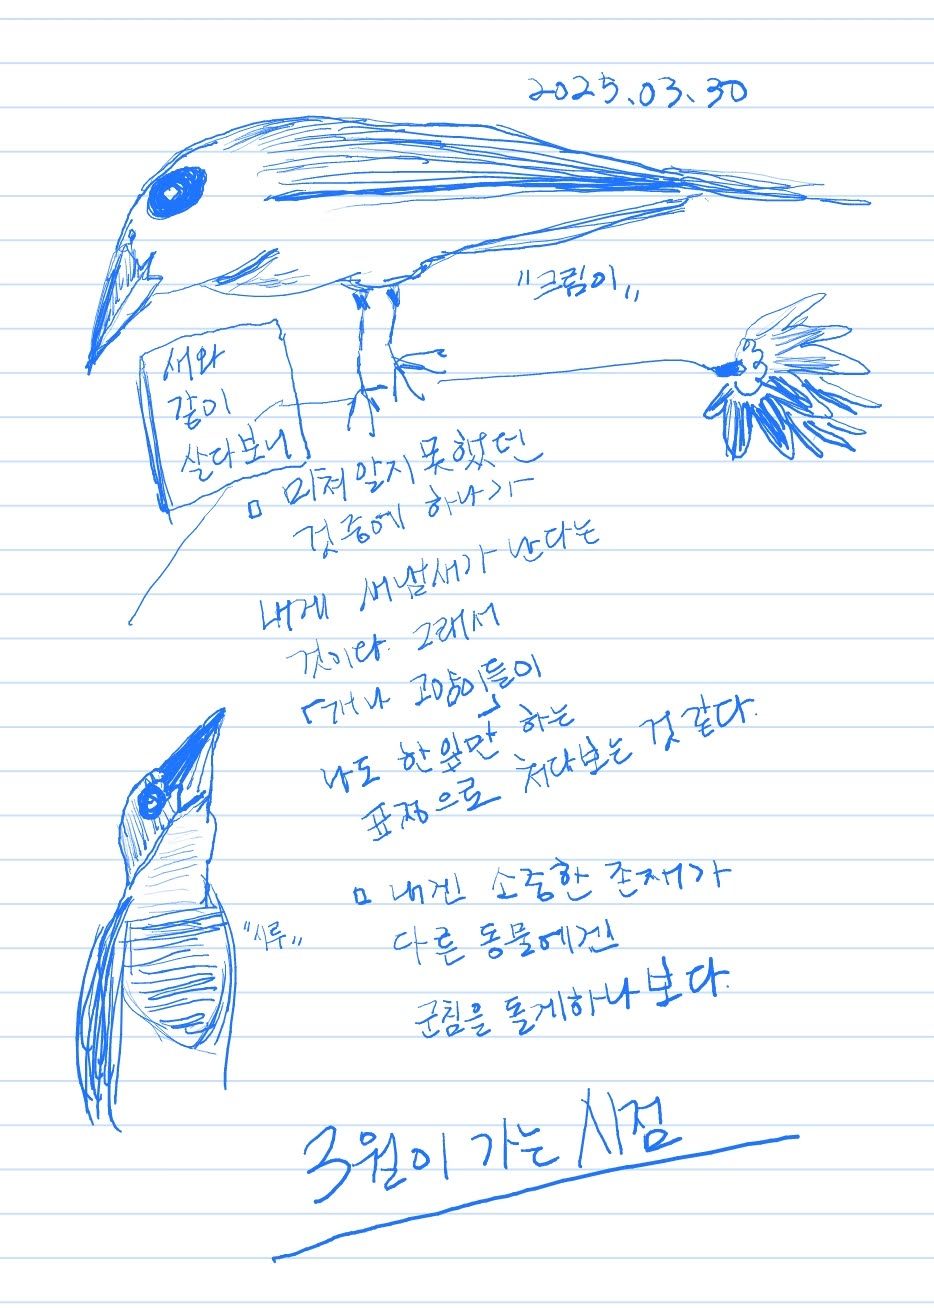 2025.03.30
"크림이"
새와
같이
살다보니
□ 미쳐 알지 못했던
것 중에 하나가
내게 새냄새가 난다는
것이다. 그래서
「개나 고양이들이
나도 한입만」 하는
표정으로 쳐다보는 것 같다.
"시루"
□ 내겐 소중한 존재가
다른 동물에겐
군침을 돌게하나보다.
3월이 가는 시점